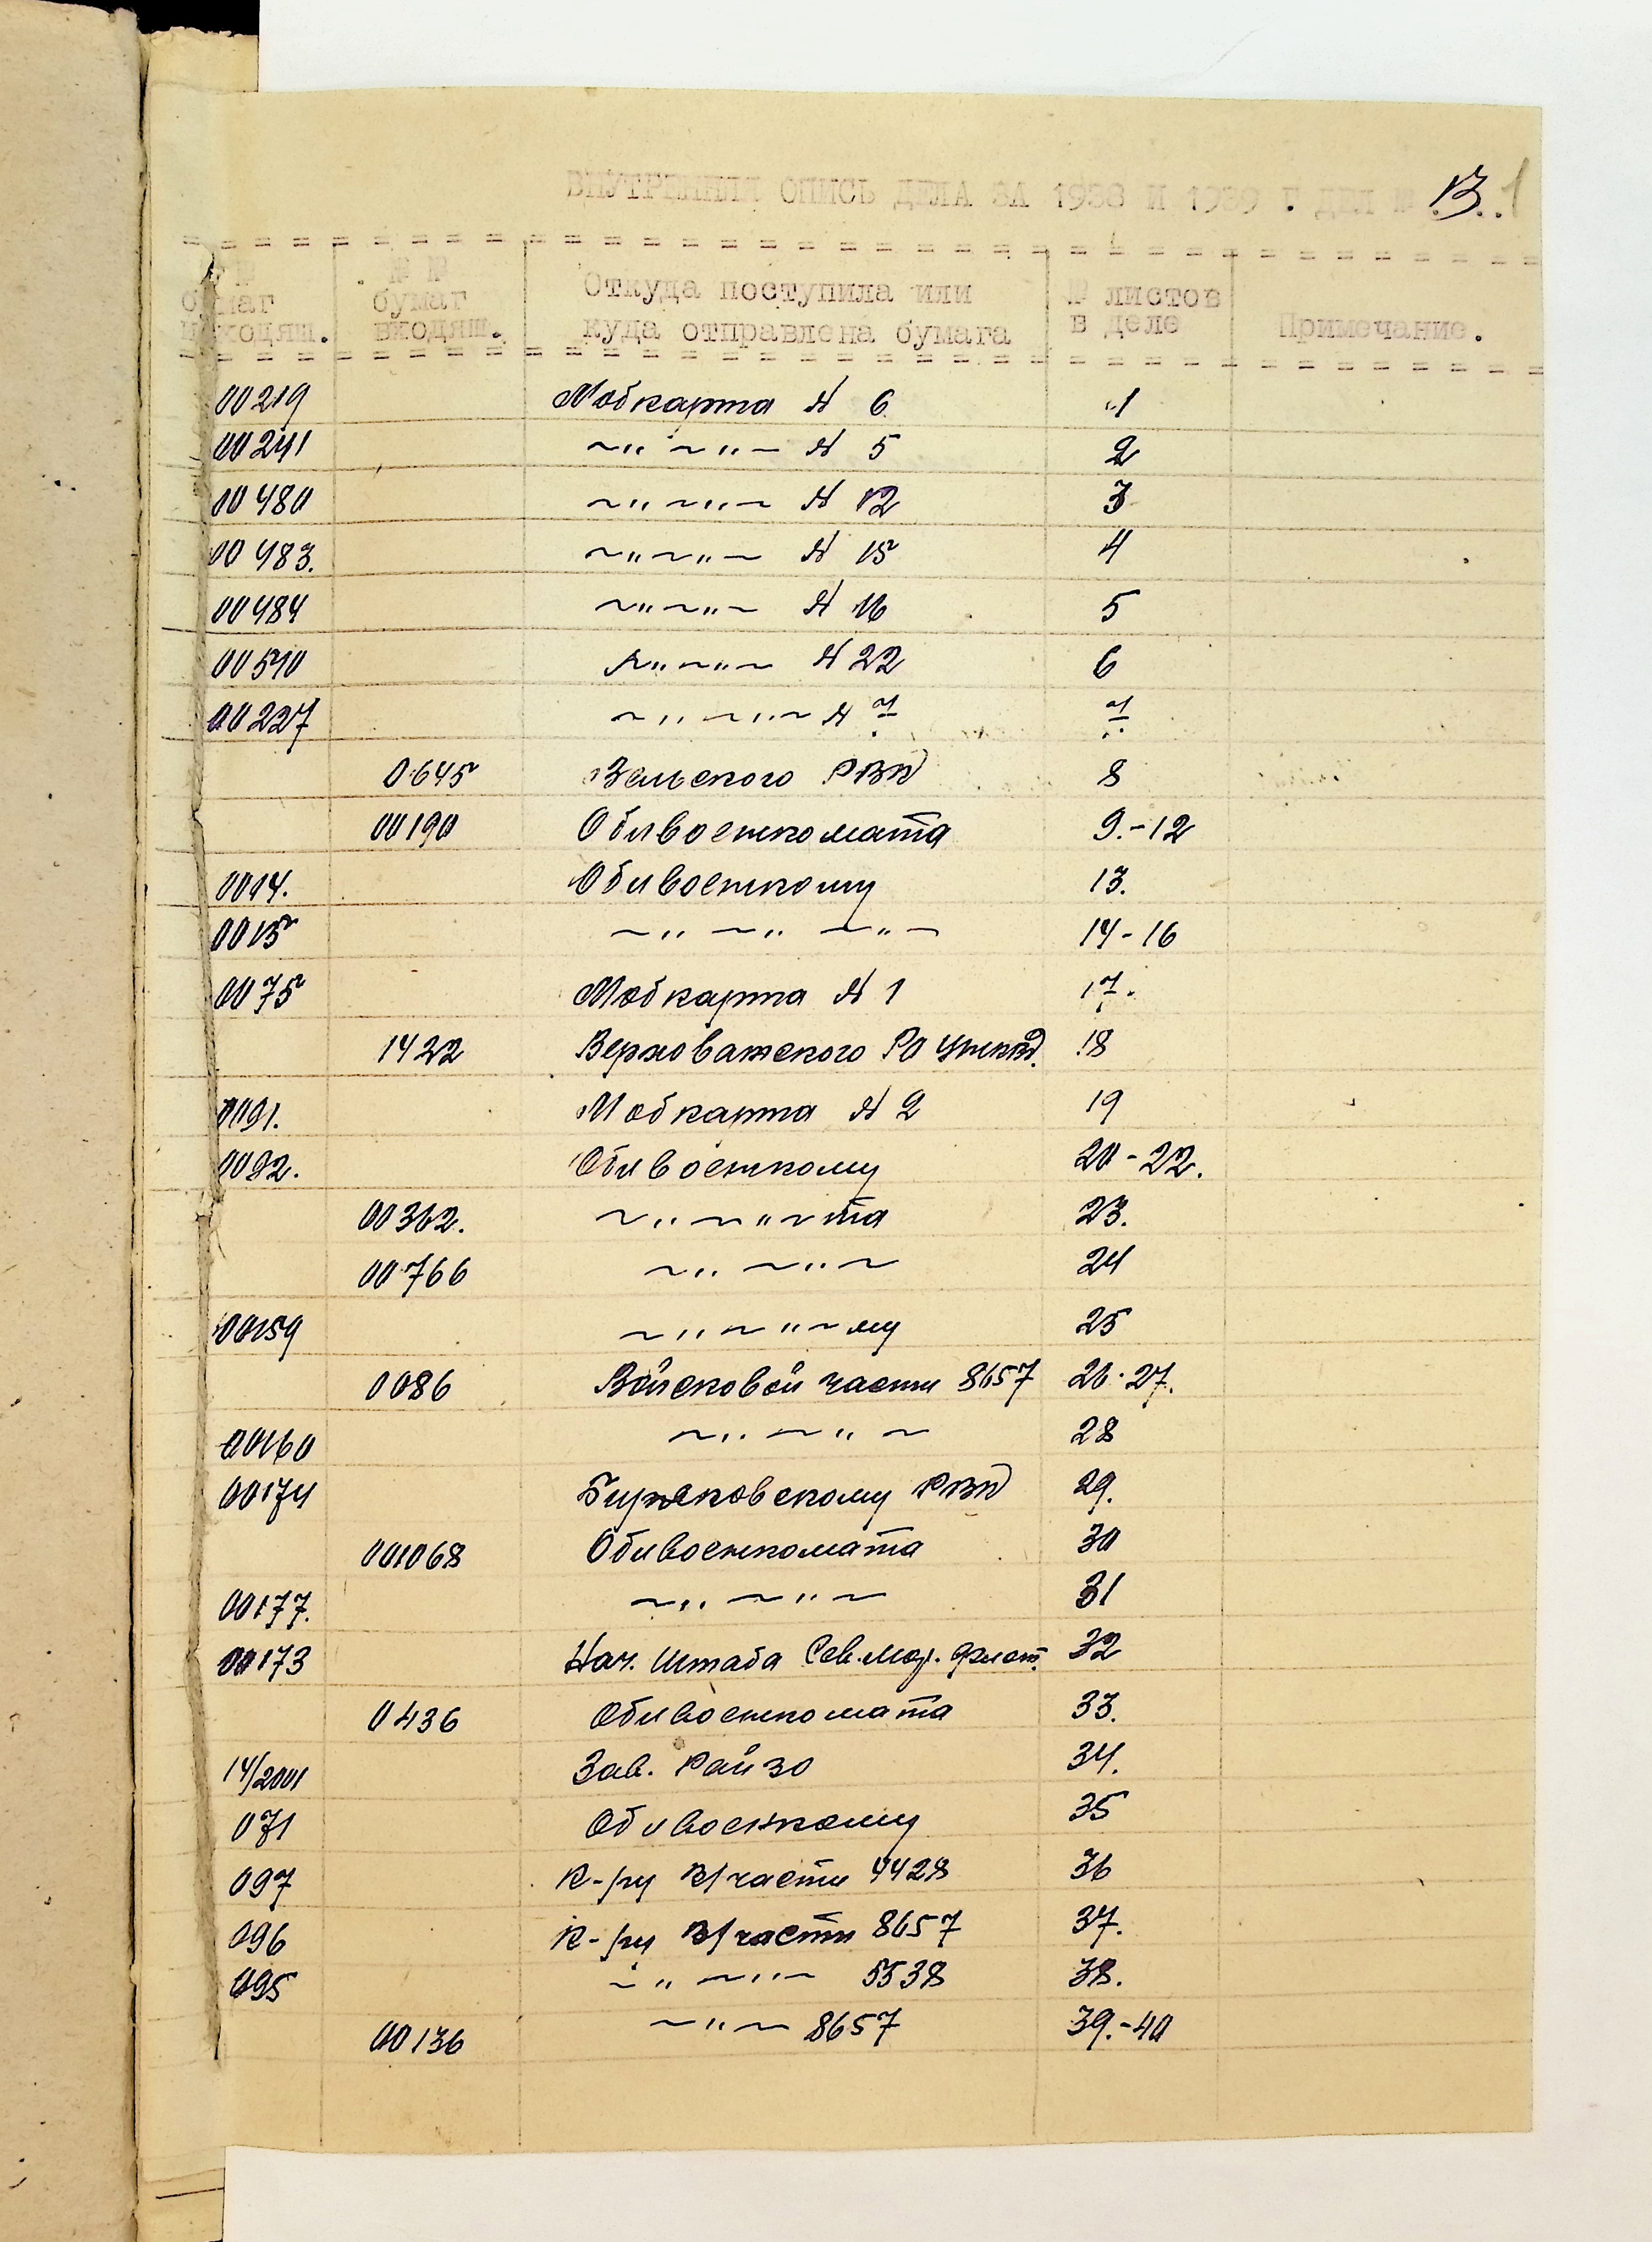 ВНУТРЕННЯЯ ОПИСЬ ДЕЛА ЗА 1938 И 1939 Г. ДЕЛ № 13. 1
№ № бумаг исходящ. № № бумаг входящ. Откуда поступила или куда отправлена бумага № листов в деле Примечание.
00219 Мобкарта № 6 1
00241 ~"~"~ № 5 2
00480 ~"~"~ № 12 3
00483. ~"~"~ № 15 4
00484 ~"~"~ № 16 5
00510 ~"~"~ № 22 6
00227 ~"~"~ № 7 7
0645 РВК 8
00190 Облвоенкомата 9.-12
0014. Облвоенкому 13.
0015 ~"~"~"~ 14-16
0075 Мобкарта № 1 17.
1422 Верховажского РО УНКВД. 18
0091. Мобкарта № 2 19
0092. Облвоенкому 20-22.
00362. ~"~"~та 23.
00766 ~"~"~ 24
00159 ~"~"~му 25
0086 Войсковой части 8657 26-27.
00160 ~"~"~ 28
00174 Биряковскому РВК 29.
001068 Облвоенкомата 30
00177. ~"~"~ 31
00173 Нач. Штаба Сев.Мор. Флот. 32
0436 Облвоенкомата 33.
14/2001 Зав. Райзо 34.
071 Облвоенкому 35
097 К-ру В/части 4428 36
096 К-ру В/части 8657 37.
095 ~"~"~ 5538 38.
00136 ~"~ 8657 39.-40